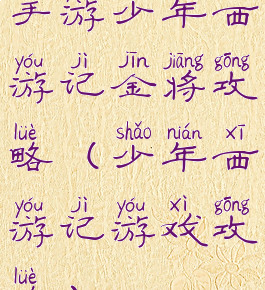 手游少年西
yóu jì jīn jiāng gōng
游记金将攻
lüè shǎo nián xī
略（少年西
yóu jì yóu xì gōng
游记游戏攻
lüè